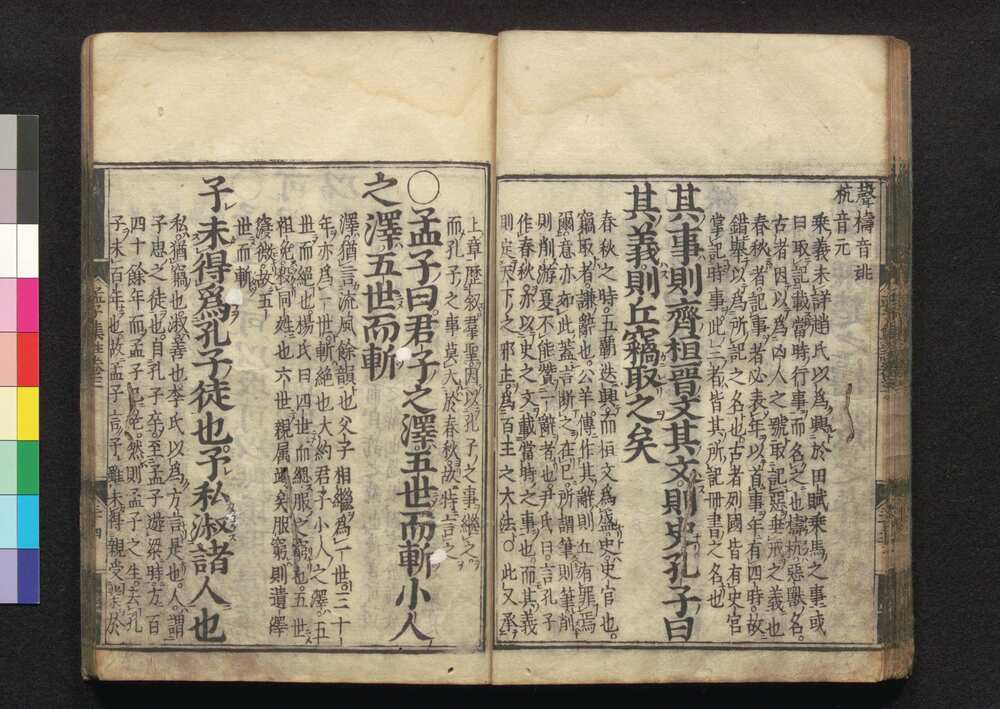 聲檮音逃
杌音元
乘義未詳趙氏以爲興於田賦乘馬之事或
曰取記載當時行事而名之也檮杌惡獸名
古者因以爲凶人之號取記惡垂戒之義也
春秋者記事者必表年以首事年有四時故
錯舉以爲所記之名也古者列國皆有史官
掌記時事此三者皆其所記冊書之名也
其事則齊桓晉文其文則史孔子曰
其義則丘竊取之矣
春秋之時五霸迭興而桓文爲盛史史官也
竊取者謙辭也公羊傳作其辭則丘有罪焉
爾意亦如此蓋言斷之在己所謂筆則筆削
則削游夏不能贊一辭者也尹氏曰言孔子
作春秋亦以史之文載當時之事也而其義
則定天下之邪正爲百王之大法○此又承
上章歷叙羣聖因以孔子之事繼之
而孔子之事莫大於春秋故特言之
○孟子曰君子之澤五世而斬小人
之澤五世而斬
澤猶言流風餘韻也父子相繼爲一世三十
年亦爲一世斬絶也大約君子小人之澤五
世而絶也楊氏曰四世而緦服之窮也五世
祖免殺同姓也六世親属竭矣服窮則遺澤
寖微故五
世而斬
子未得爲孔子徒也予私淑諸人也
私猶竊也淑善也李氏以爲方言是也人謂
子思之徒也自孔子卒至孟子遊梁時方百
四十餘年而孟子已老然則孟子之生去孔
子未百年也故孟子言予雖未得親受業於